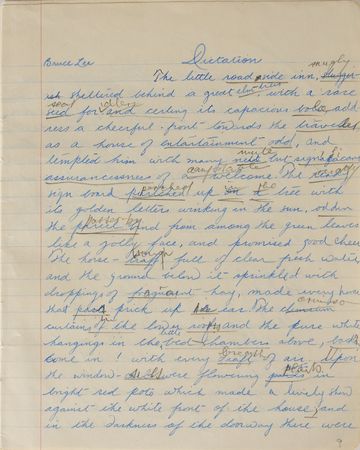 Bruce Lee Dictation
snugly
The little road side inn,
sheltered behind a great elm-tree with a rare
seat idlers
for and its capacious
a cheerful front towards the traveller
as a house of entertainment and
tempted him with many mute but significant
assurances of a welcome. The
sign board perched up in the tree with
its golden letters winking in the sun,
the passer-by from among the green leaves
like a jolly face, and promised good cheer
The horse trough full of clear fresh water
and the ground below it sprinkled with
droppings of fragrant hay, made every horse
that prick up ears. The crimson
curtains of the lower rooms and the pure white
hangings in the bed chambers above,
come in! with every breath of air. Upon
the window- were flowering plants
bright red pots which made a lively show
against the white front of the house, and
in the darkness of the doorway there were
9